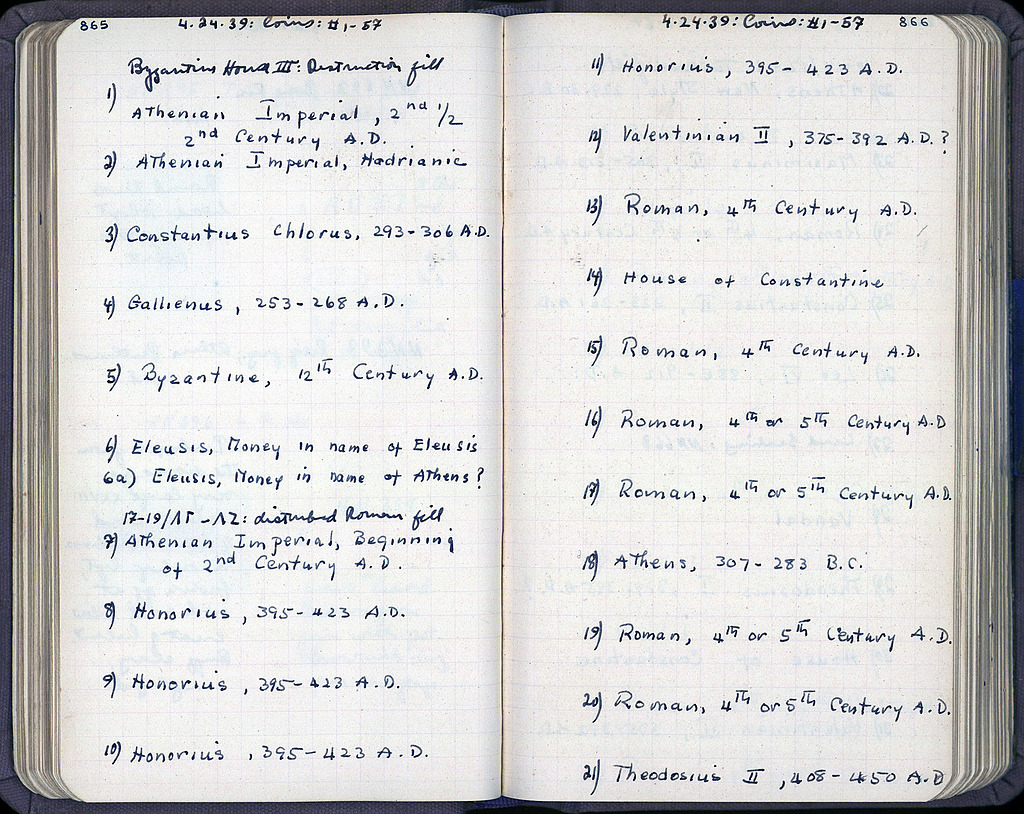 865
4.24.39: Coins: #1-57
Byzantine House III: Destruction fill
1)
Athenian Imperial, 2nd 1/2
2nd Century A.D.
2) Athenian Imperial, Hadrianic
3) Constantius Chlorus, 293-306 A.D.
4) Gallienus, 253-268 A.D.
5) Byzantine, 12th Century A.D.
6) Eleusis, Money in name of Eleusis
6a) Eleusis, Money in name of Athens?
17-19/ΛΓ-ΛΖ: disturbed Roman fill
7) Athenian Imperial, Beginning
of 2nd Century A.D.
8) Honorius, 395-423 A.D.
9) Honorius, 395-423 A.D.
10) Honorius, 395-423 A.D.
4.24.39: Coins: #1-57
866
11) Honorius, 395-423 A.D.
12) Valentinian II, 375-392 A.D.?
13) Roman, 4th Century A.D.
14) House of Constantine
15) Roman, 4th Century A.D.
16) Roman, 4th or 5th Century A.D
17) Roman, 4th or 5th Century A.D.
18) Athens, 307-283 B.C.
19) Roman, 4th or 5th Century A.D.
20) Roman, 4th or 5th Century A.D.
21) Theodosius II, 408-450 A.D